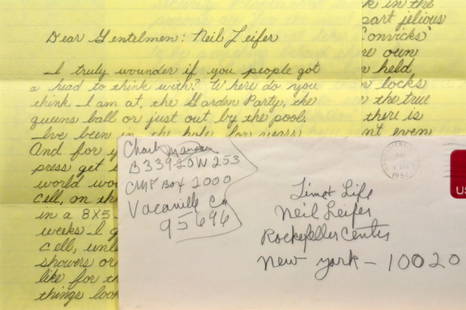 Dear Gentelmen: Neil Leifer
I truly wounder if you people got
a head to think with? Where do you
think I am at, the Garden Party, the
queens ball or just out by the pool.
I've been in the hole for years
And for
press get
world wo
cell, on
in a 8X5
weeks I g
cell, unl
showers or
like for th
things loo
in the
part jelious
Convicks'
own
held,
locks
in the true
there is
even
Charles Manson
B33920W253
CMF Box 2000
Vacaville Ca
95696
Time Life
Neil Leifer
Rockefeller Center
New york - 10020
US